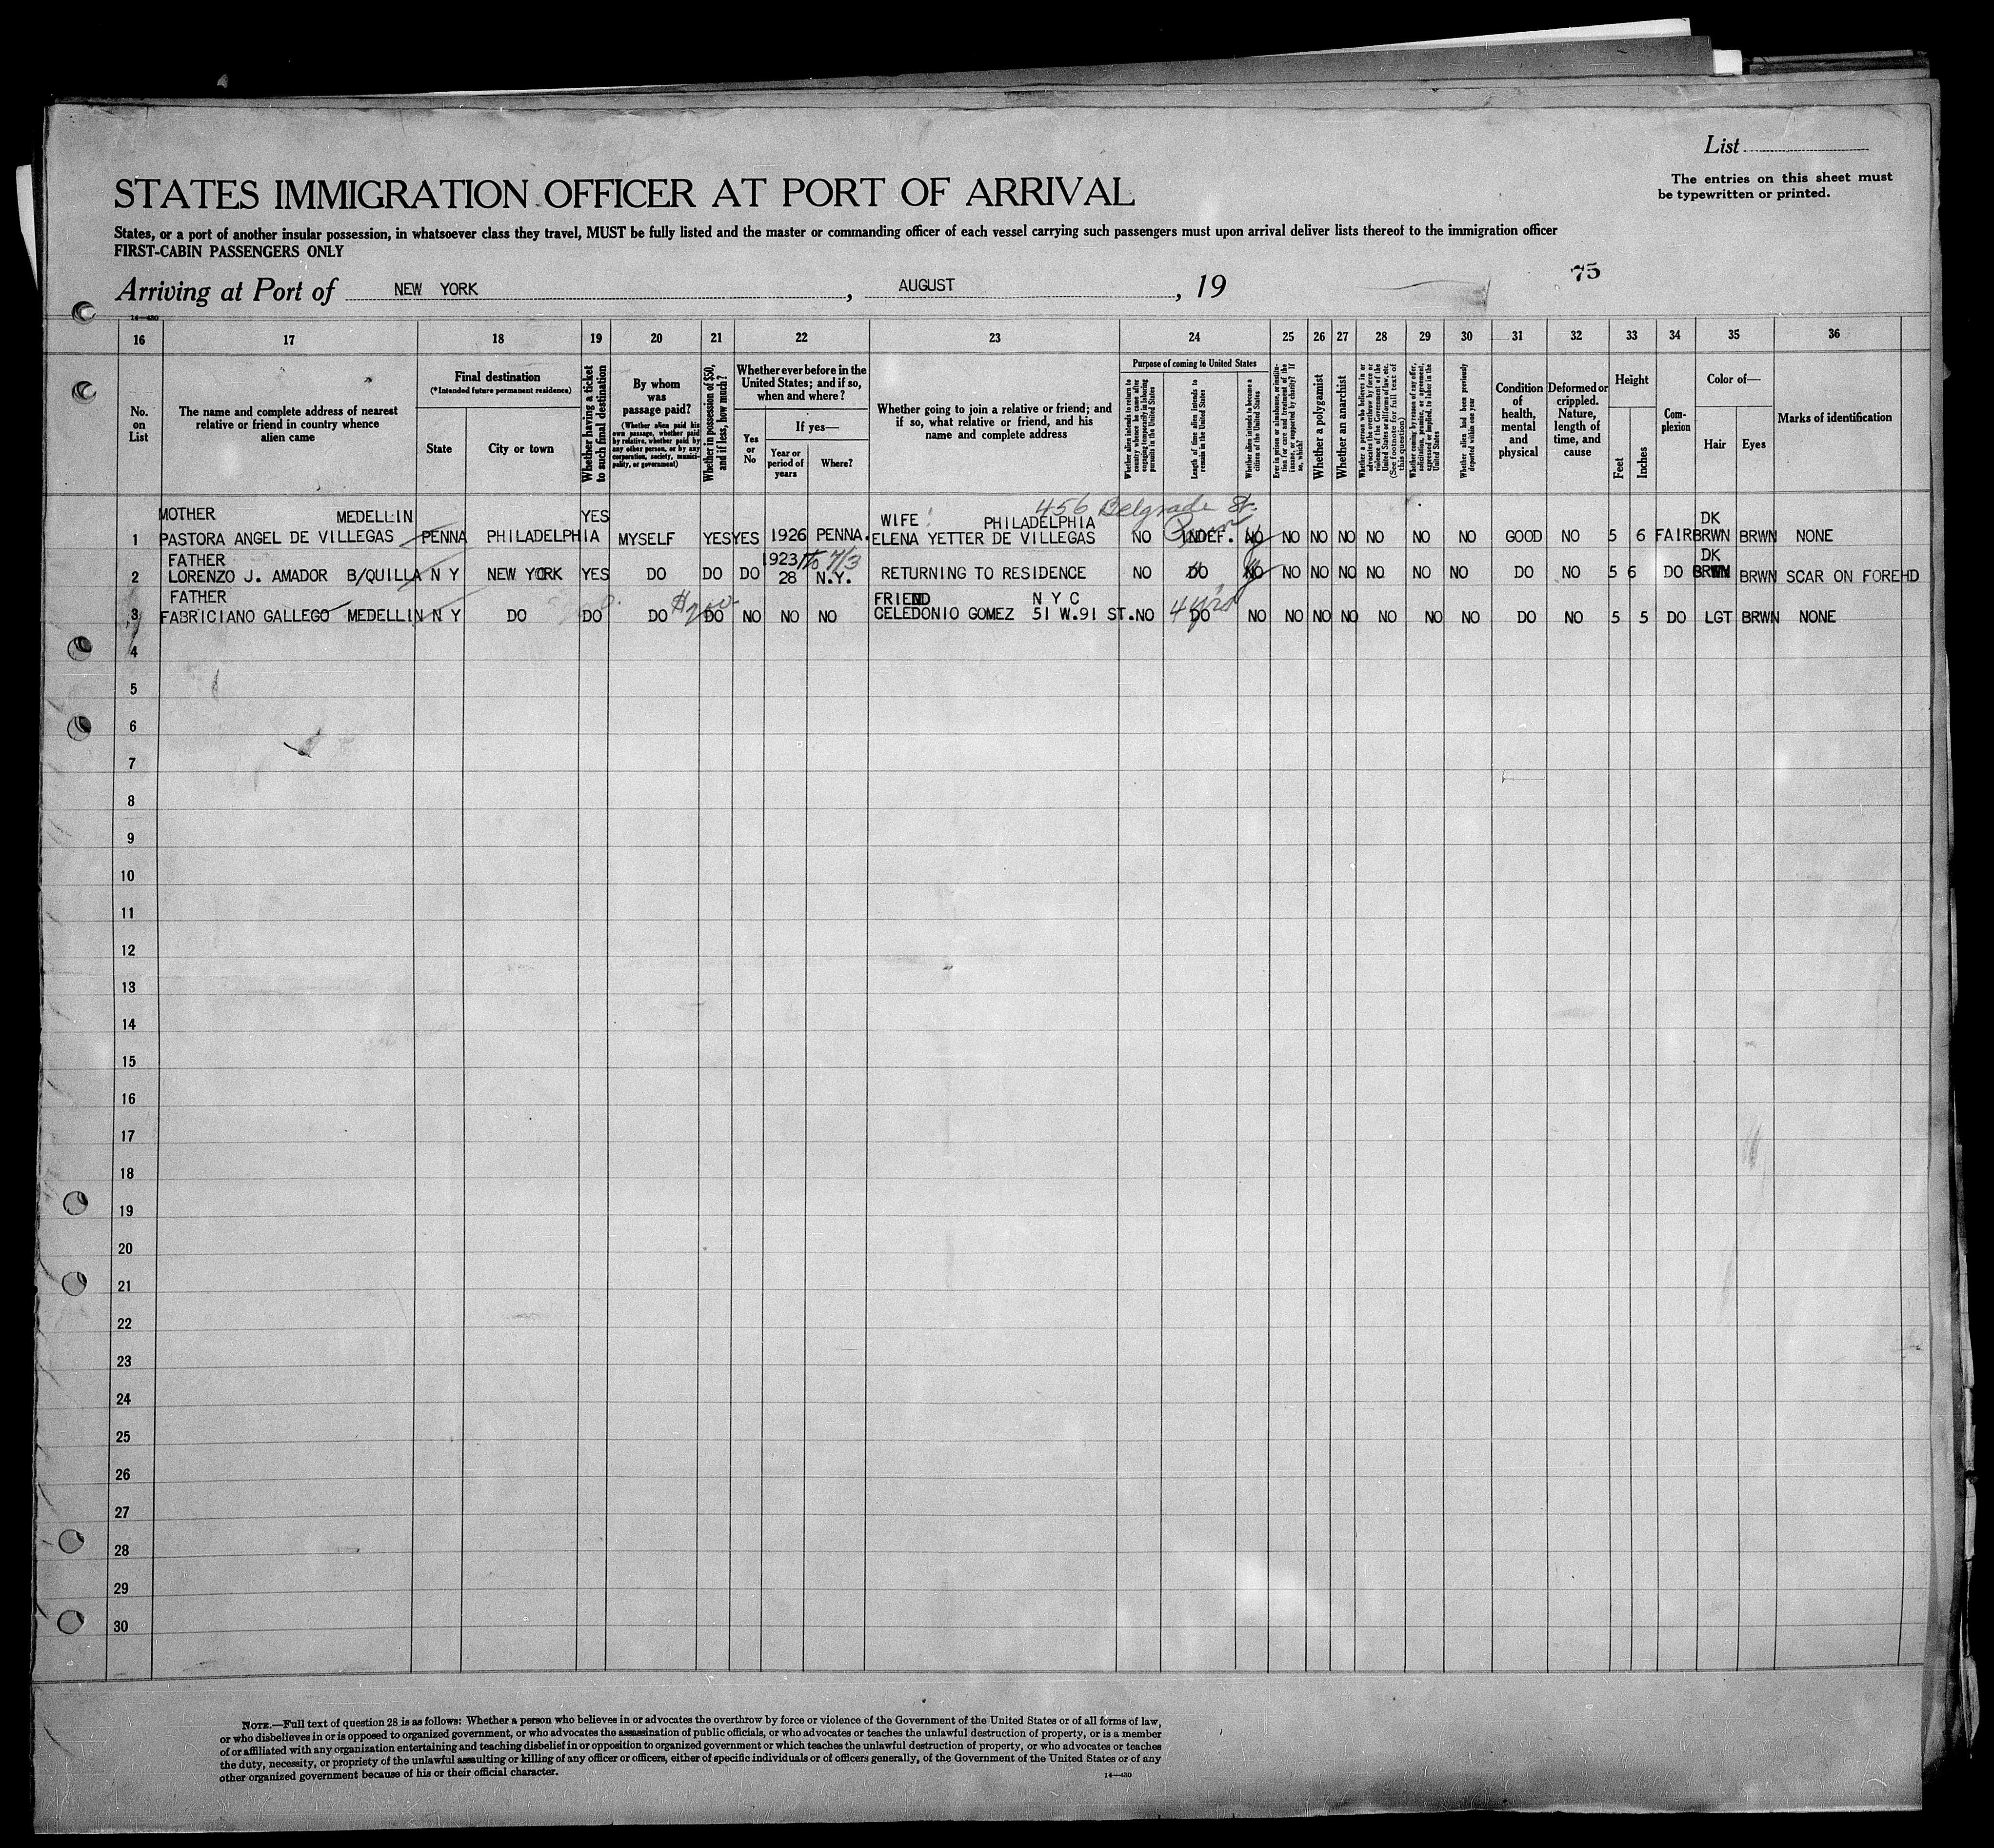 List
The entries on this sheet must
be typewritten or printed.
STATES IMMIGRATION OFFICER AT PORT OF ARRIVAL
States, or a port of another insular possession, in whatsoever class they travel, MUST be fully listed and the master or commanding officer of each vessel carrying such passengers must upon arrival deliver lists thereof to the immigration officer
FIRST-CABIN PASSENGERS ONLY
75
Arriving at Port of NEW YORK, AUGUST, 19
14—430
16 17 18 19 20 21 22 23 24 25 26 27 28 29 30 31 32 33 34 35 36
No. on List
The name and complete address of nearest relative or friend in country whence alien came
Final destination
(*Intended future permanent residence)
State
City or town
Whether having a ticket to such final destination
By whom was passage paid?
(Whether alien paid his own passage, whether paid by relative, whether paid by any other person, or by any corporation, society, municipality, or government)
Whether in possession of $50, and if less, how much?
Whether ever before in the United States; and if so, when and where?
Yes or No
If yes—
Year or period of years
Where?
Whether going to join a relative or friend; and if so, what relative or friend, and his name and complete address
Purpose of coming to United States
Whether alien intends to return to country whence he came after engaging temporarily in laboring pursuits in the United States
Length of time alien intends to remain in the United States
Whether alien intends to become a citizen of the United States
Ever in prison or almshouse, or institution for care and treatment of the insane, or supported by charity? If so, which?
Whether a polygamist
Whether an anarchist
Whether a person who believes in or advocates the overthrow by force or violence of the Government of the United States or all forms of law, etc. (See footnote for full text of this question)
Whether coming by reason of any offer, solicitation, promise, or agreement, expressed or implied, to labor in the United States
Whether alien had been previously deported within one year
Condition of health, mental and physical
Deformed or crippled. Nature, length of time, and cause
Height
Feet
Inches
Complexion
Color of—
Hair
Eyes
Marks of identification
456 Belgrade St.
MOTHER MEDELLIN YES WIFE: PHILADELPHIA DK
1 PASTORA ANGEL DE VILLEGAS PENNA PHILADELPHIA MYSELF YES YES 1926 PENNA. ELENA YETTER DE VILLEGAS NO INDEF. NO NO NO NO NO NO NO GOOD NO 5 6 FAIR BRWN BRWN NONE
FATHER 1923 To 7/3 DK
2 LORENZO J. AMADOR B/QUILLA N Y NEW YORK YES DO DO DO 28 N.Y. RETURNING TO RESIDENCE NO DO NO NO NO NO NO NO NO DO NO 5 6 DO BRWN BRWN SCAR ON FOREHD
FATHER $200 FRIEND N Y C 4 yrs
3 FABRICIANO GALLEGO MEDELLIN N Y DO DO DO DO NO NO NO CELEDONIO GOMEZ 51 W.91 ST. NO DO NO NO NO NO NO NO NO DO NO 5 5 DO LGT BRWN NONE
4
5
6
7
8
9
10
11
12
13
14
15
16
17
18
19
20
21
22
23
24
25
26
27
28
29
30
NOTE.—Full text of question 28 is as follows: Whether a person who believes in or advocates the overthrow by force or violence of the Government of the United States or of all forms of law,
or who disbelieves in or is opposed to organized government, or who advocates the assassination of public officials, or who advocates or teaches the unlawful destruction of property, or is a member
of or affiliated with any organization entertaining and teaching disbelief in or opposition to organized government or which teaches the unlawful destruction of property, or who advocates or teaches
the duty, necessity, or propriety of the unlawful assaulting or killing of any officer or officers, either of specific individuals or of officers generally, of the Government of the United States or of any
other organized government because of his or their official character.
14—430